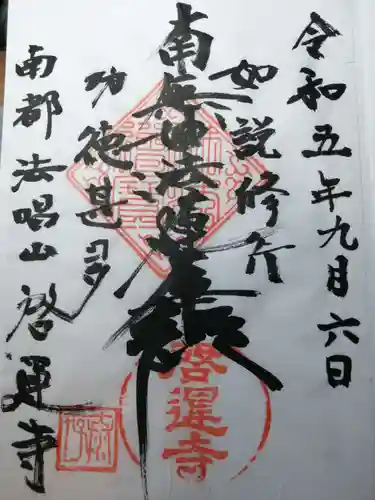 令和五年九月六日
如説修行
南無妙法蓮華経
功徳甚多
南都 法唱山 啓運寺
啓運寺